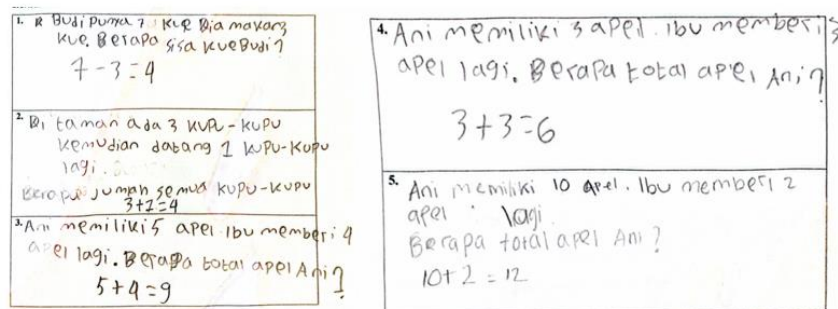 1. R Budi punya 7 kue Dia makan 3
kue. Berapa sisa kue Budi?
7 - 3 = 4
2. Di taman ada 3 kupu-kupu
kemudian datang 1 kupu-kupu
lagi.
Berapa jumah semua kupu-kupu
3+1=4
3. Ani memiliki 5 apel. Ibu memberi 4
apel lagi. Berapa total apel Ani?
5+4=9
4. Ani memiliki 3 apel. Ibu memberi 3
apel lagi. Berapa total apel Ani?
3+3=6
5. Ani memiliki 10 apel. Ibu memberi 2
apel lagi
Berapa total apel Ani?
10+2 = 12